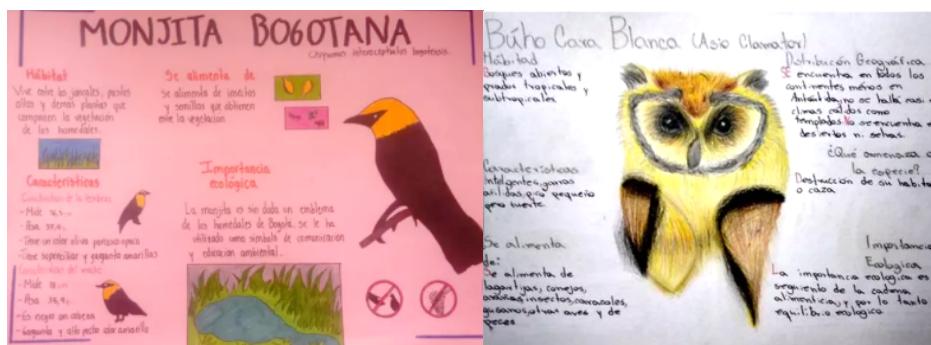 MONJITA BOGOTANA
Chrysomus icterocephalus bogotensis.
Hábitat
Vive entre los juncales, pastos
altos y demás plantas que
componen la vegetación
de los humedales.
Se alimenta de
Se alimenta de insectos
y semillas que obtienen
entre la vegetación
Características
Características de la hembra
- Mide
- Pesa
- Tiene un color oliva
- Tiene superciliar y garganta amarillas
Características del macho
- Mide
- Pesa
- Es negro con cabeza
- Garganta y alto pecho color amarillo
Importancia
ecológica
La monjita es sin duda un emblema
de los humedales de Bogotá, se le ha
utilizado como símbolo de comunicación
y educación ambiental.
Búho Cara Blanca (Asio Clamator)
Hábitad
Bosques abiertos y
prados tropicales y
subtropicales.
Características
Inteligentes, garras
afiladas, pico pequeño
pero fuerte.
Se alimenta
de:
Se alimenta de
lagartijas, conejos,
arañas insectos, caracoles,
gusanos, otras aves y de
peces
Distribución Geográfica
SE encuentra en todos los
continentes menos en
Antartida, no se halla casi
climas calidos como
templados. No se encuentra
desiertos ni selvas.
¿Qué amenaza a
la especie?
Destrucción de su habita
o caza
Importancia
Ecologica
La importancia ecologica es
seguiento de la cadena
alimenticia y por lo tanto
equilibrio ecologico